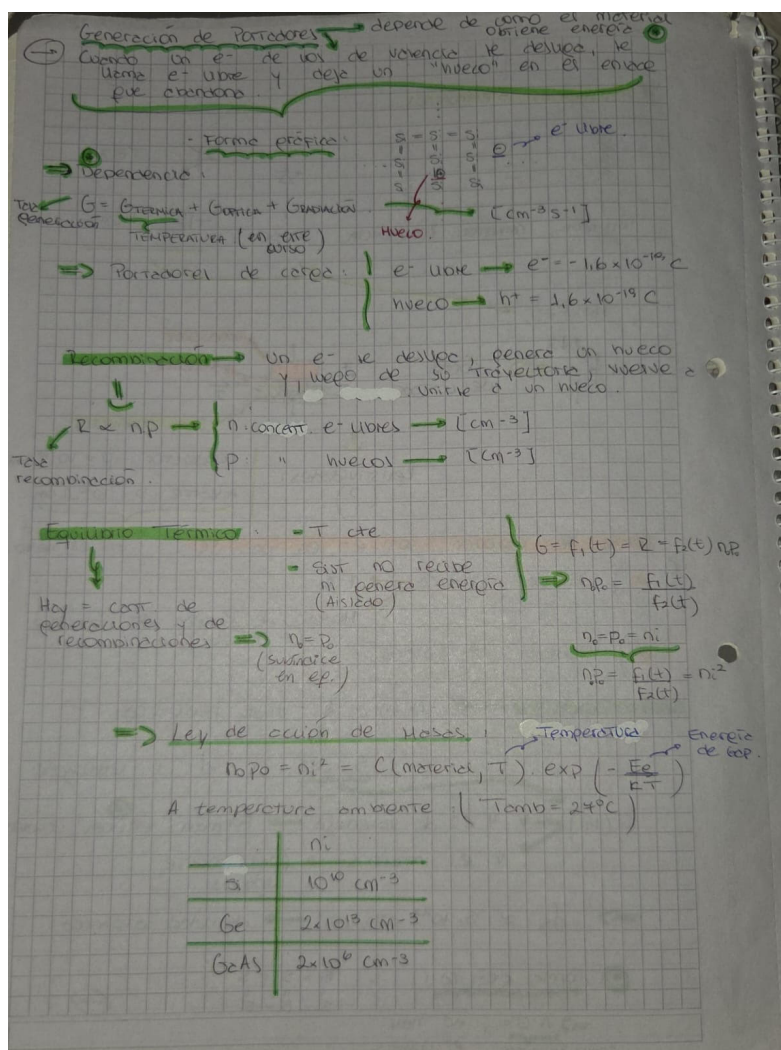 Generación de Portadores → depende de como el material obtiene energía
Cuando un e- de los de valencia se desliga, se
llama e- libre y deja un "hueco" en el enlace
que abandona.
- Forma gráfica:
Si - Si - Si
Si Si Si
Si Si Si
e- libre
Hueco
⇒ Dependencia:
G = GTERMICA + GOPTICA + GRADIACIÓN → [cm-3 s-1]
Tasa generación
TEMPERATURA (en este curso)
⇒ Portadores de carga:
e- libre → e- = -1,6 x 10-19 C
hueco → h+ = 1,6 x 10-19 C
Recombinación → un e- se desliga, genera un hueco
y, luego de su trayectoria, vuelve a
unirse a un hueco.
R ∝ n.p →
n: concent. e- libres → [cm-3]
p: " huecos → [cm-3]
Tasa
recombinación.
Equilibrio Térmico:
- T cte
- Sist no recibe
ni genera energía
(Aislado)
G = f1(t) = R = f2(t) n0p0
⇒ n0p0 = f1(t) / f2(t)
Hay = cant. de
generaciones y de
recombinaciones ⇒ n0 = p0
(subíndice
en eq.)
n0 = p0 = ni
n0p0 = f1(t) / f2(t) = ni2
⇒ Ley de acción de Masas:
Temperatura
Energía
de Gap.
n0p0 = ni2 = C(material, T). exp (- Eg / kT)
A temperatura ambiente: (Tamb = 27°C)
ni
Si 1010 cm-3
Ge 2x1013 cm-3
GaAs 2x106 cm-3